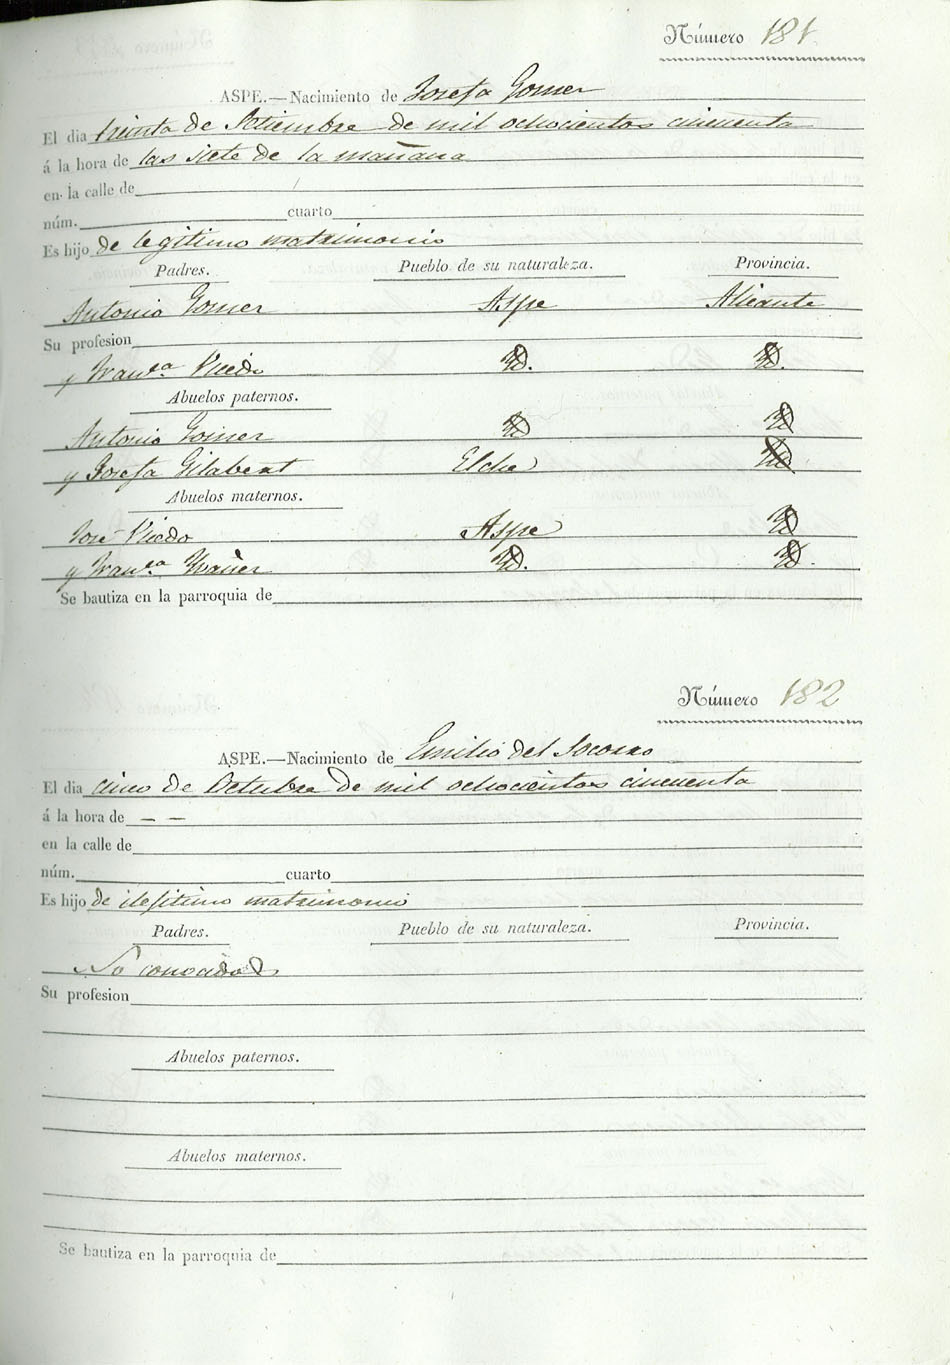 Número 181.
ASPE.—Nacimiento de Josefa Gomer
El dia treinta de Setiembre de mil ochocientos cincuenta
á la hora de las siete de la mañana
en la calle de
núm. cuarto
Es hijo de legitimo matrimonio
Padres. Pueblo de su naturaleza. Provincia.
Antonio Gomer Aspe Alicante
Su profesion
y Franca Picedo Id. Id.
Abuelos paternos.
Antonio Gomer Id Id
y Josefa Gilabert Elche Id
Abuelos maternos.
José Picedo Aspe Id
y Franca Id. Id.
Se bautiza en la parroquia de
Número 182
ASPE.—Nacimiento de Emilio del Socorro
El dia cinco de Octubre de mil ochocientos cincuenta
á la hora de — —
en la calle de
núm. cuarto
Es hijo de ilegitimo matrimonio
Padres. Pueblo de su naturaleza. Provincia.
No conocidos
Su profesion
Abuelos paternos.
Abuelos maternos.
Se bautiza en la parroquia de